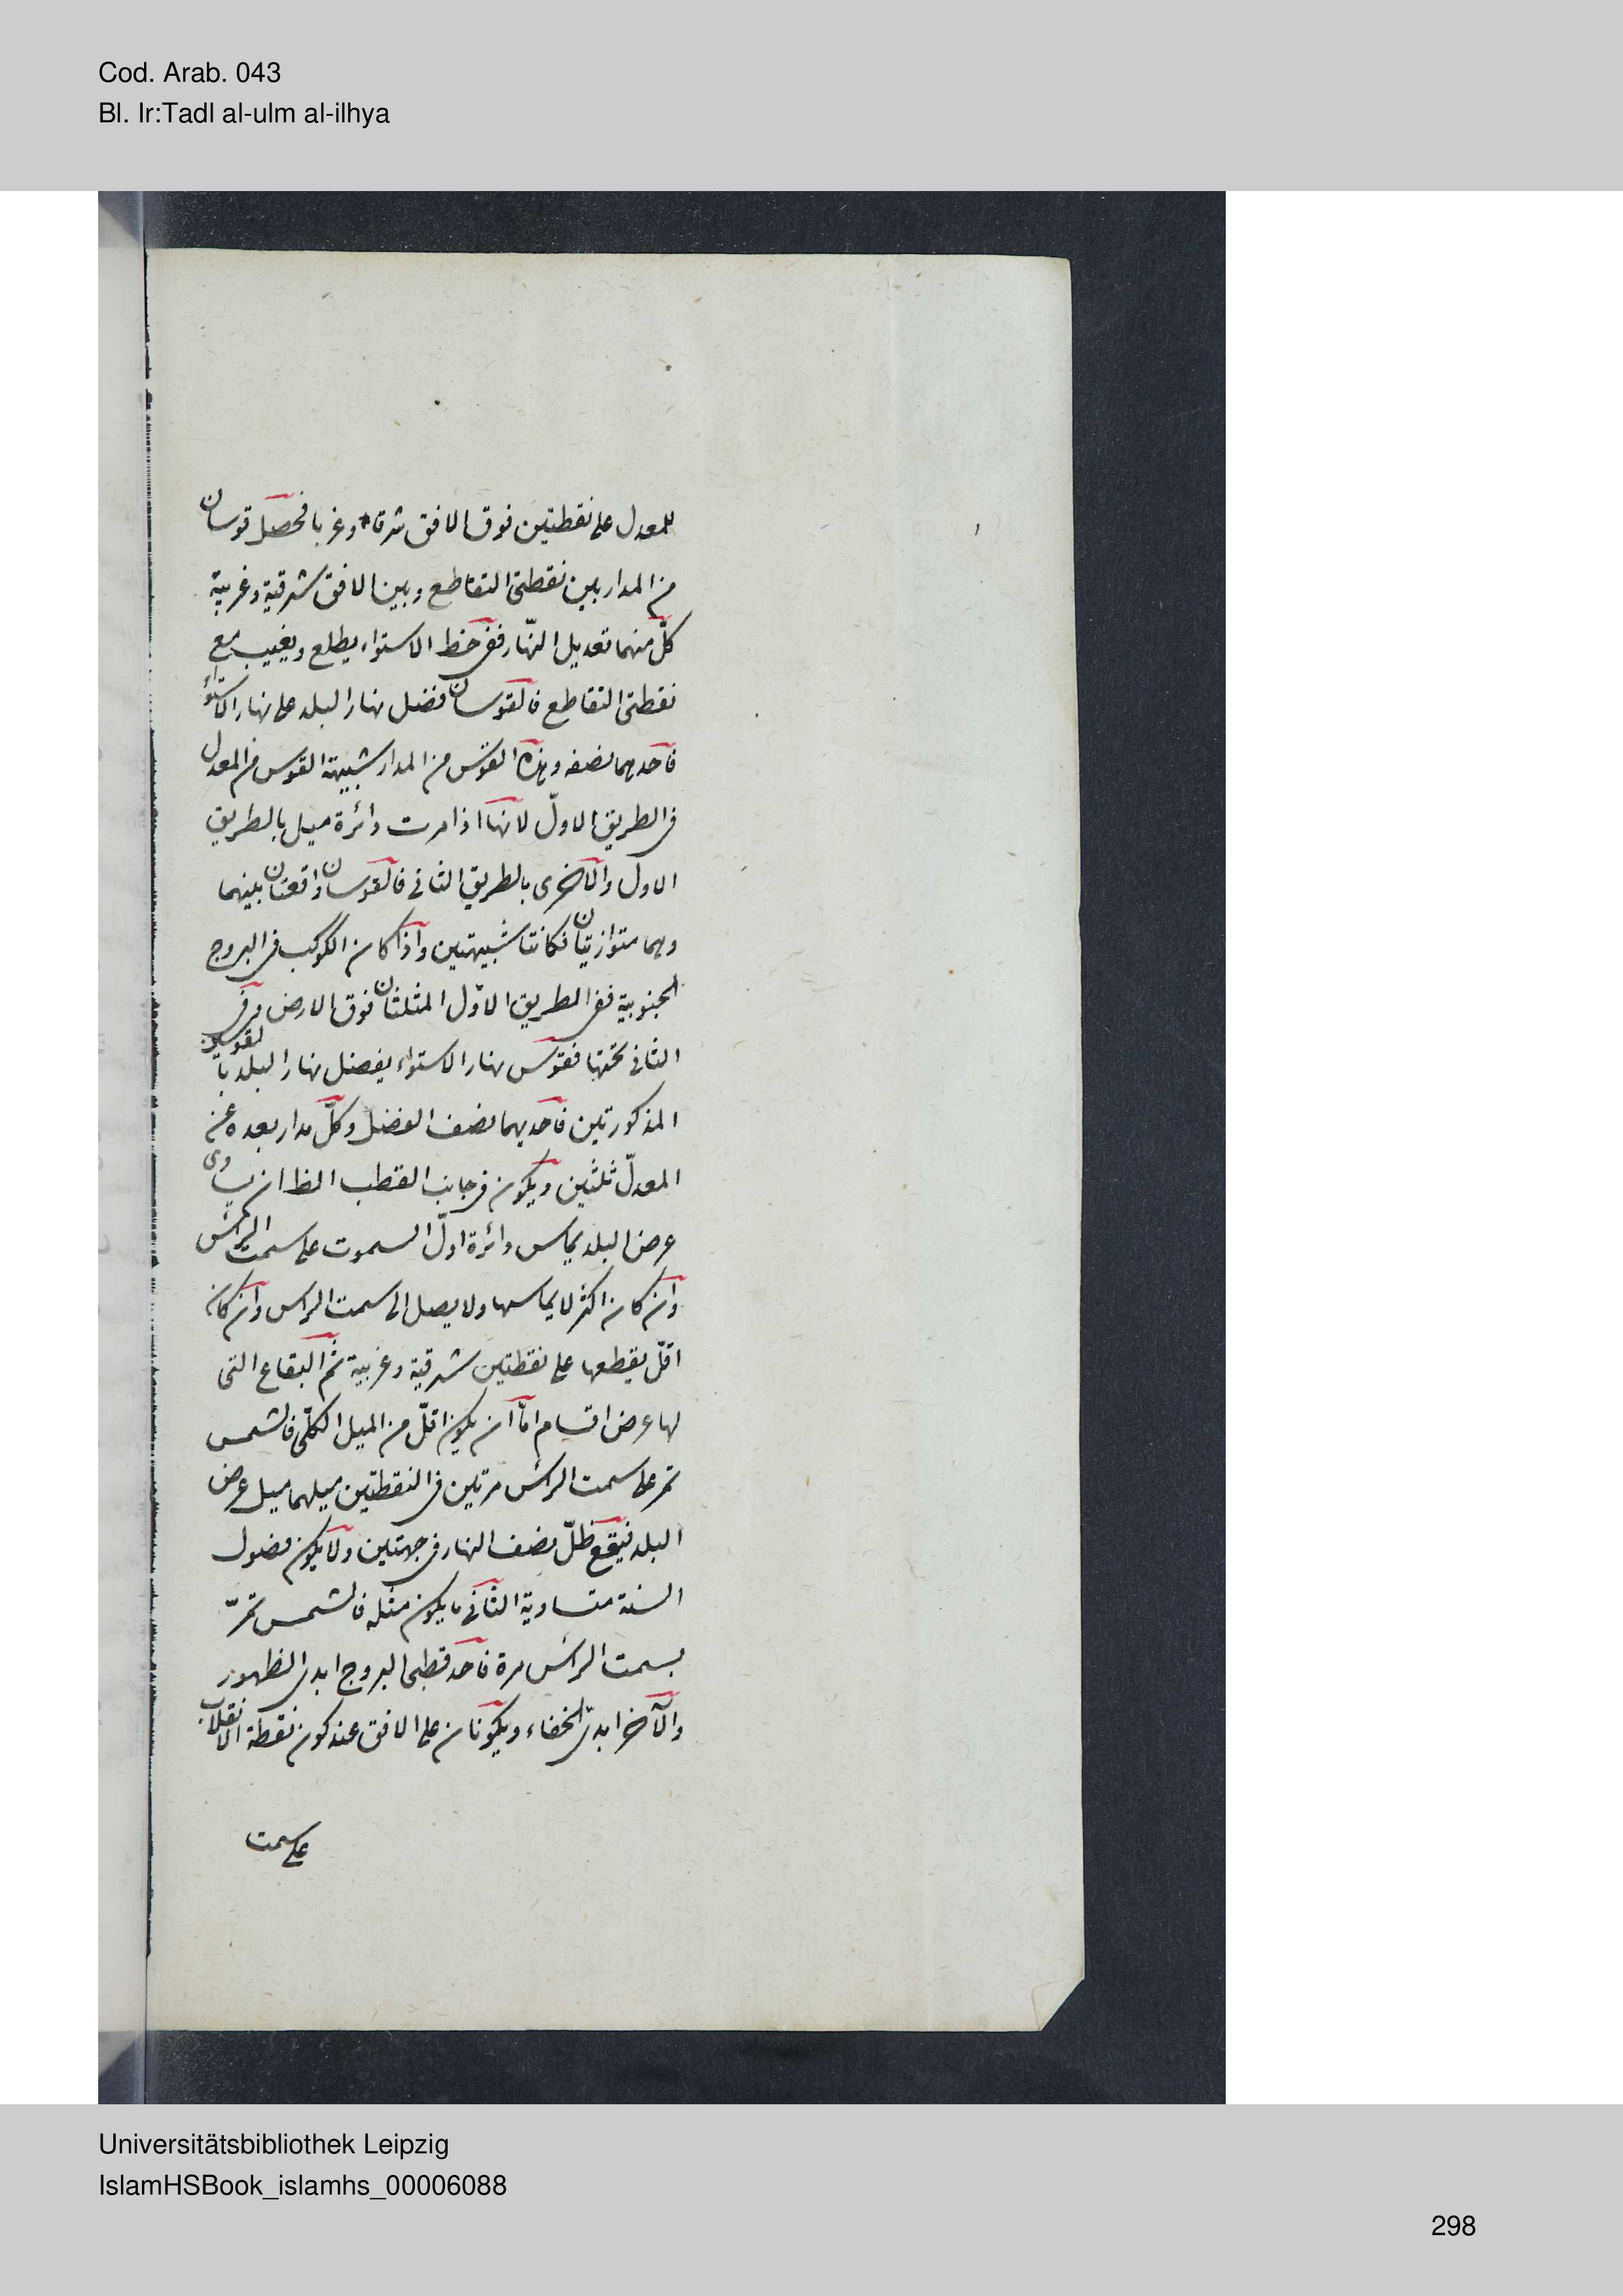 Cod. Arab. 043
Bl. Ir:Tadl al-ulm al-ilhya
للمعدل على نقطتين فوق الافق شرقا وغربا فحصل قوسان
من المدار بين نقطتى التقاطع وبين الافق شرقية وغربية
كلّ منهما تعديل النّهار ففى خط الاستواء يطلع ويغيب مع
نقطتى التقاطع فالقوسان فضل نهار البلد على نهار الاستواء
فاحدهما نصفه وهذه القوس من المدار شبيهة القوس من المعدل
فى الطريق الاولّ لانها اذا مرت دائرة ميل بالطريق
الاول والاخرى بالطريق الثانى فالقوسان واقعتان بينهما
وهما متوازيتان فكانتا شبيهتين واذا كان الكوكب فى البروج
الجنوبية ففى الطريق الاوّل المثلثان فوق الارض وفى
الثانى تحتها فقوس نهار الاستواء يفضل نهار البلد بالقوسين
المذكورتين فاحديهما نصف الفضل وكلّ مدار بعده عن
المعدلّ ثلثين ويكون فى جانب القطب الظ ان يساوى
عرض البلد يماس دائرة اولّ السموت على سمت الرأس
وان كان اكثر لا يماسها ولا يصل الى سمت الراس وان كان
اقلّ يقطعها على نقطتين شرقية وغربية ثم البقاع التى
لها عرض اقسام امّا ان يكون اقلّ من الميل الكلّى فالشمس
تمر على سمت الرأس مرتين فى النقطتين ميلهما ميل عرض
البلد فيقع ظلّ نصف النهار فى جهتين ولا يكون فصول
السنة متساوية الثانى ما يكون مثله فالشمس تمرّ
بسمت الرأس مرة فاحد قطبى البروج ابدى الظهور
والآخر ابدى الخفاء ويكونان على الافق عند كون نقطة الانقلاب
على سمت
Universitätsbibliothek Leipzig
IslamHSBook_islamhs_00006088
298